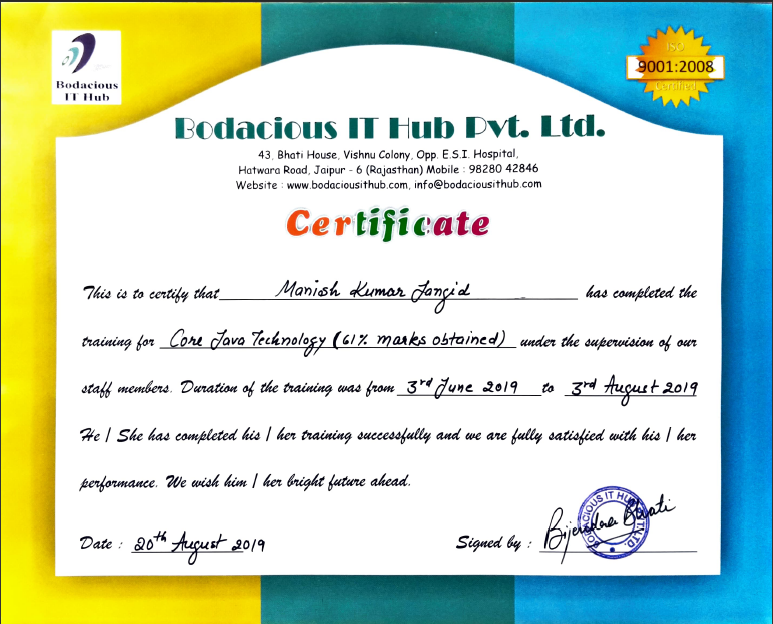 Bodacious
IT Hub
ISO
9001:2008
Certified
Bodacious IT Hub Pvt. Ltd.
43, Bhati House, Vishnu Colony, Opp. E.S.I. Hospital,
Hatwara Road, Jaipur - 6 (Rajasthan) Mobile : 98280 42846
Website : www.bodaciousithub.com, info@bodaciousithub.com
Certificate
This is to certify that Manish Kumar Jangid has completed the
training for Core Java Technology (61% marks obtained) under the supervision of our
staff members. Duration of the training was from 3rd June 2019 to 3rd August 2019
He / She has completed his / her training successfully and we are fully satisfied with his / her
performance. We wish him / her bright future ahead.
BODACIOUS IT HUB PVT. LTD.
Date : 20th August 2019 Signed by : Bijendra Bhati